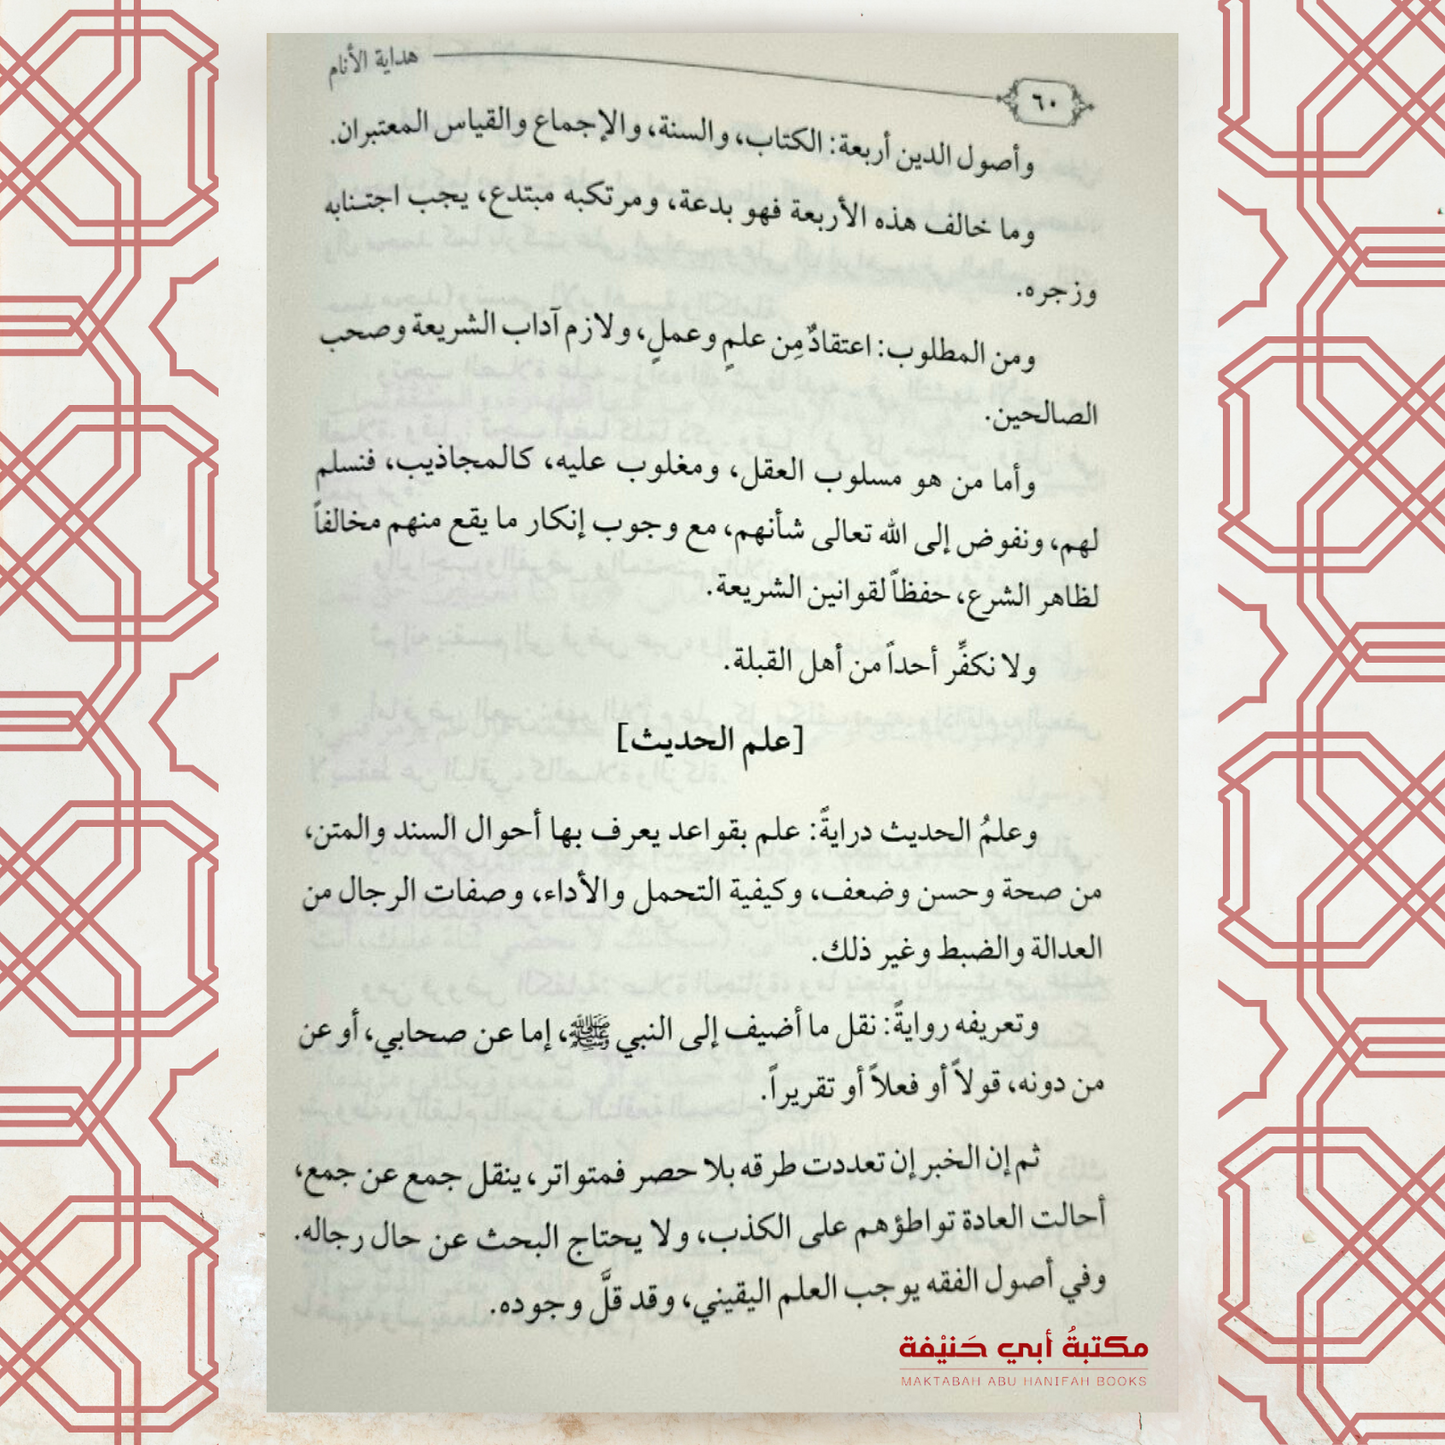 هداية الأنام
٦٠
وأصول الدين أربعة: الكتاب، والسنة، والإجماع والقياس المعتبران.
وما خالف هذه الأربعة فهو بدعة، ومرتكبه مبتدع، يجب اجتنابه
وزجره.
ومن المطلوب: اعتقادٌ مِن علمٍ وعملٍ، ولازم آداب الشريعة وصحب
الصالحين.
وأما من هو مسلوب العقل، ومغلوب عليه، كالمجاذيب، فنسلم
لهم، ونفوض إلى الله تعالى شأنهم، مع وجوب إنكار ما يقع منهم مخالفاً
لظاهر الشرع، حفظاً لقوانين الشريعة.
ولا نكفِّر أحداً من أهل القبلة.
[علم الحديث]
وعلمُ الحديث درايةً: علم بقواعد يعرف بها أحوال السند والمتن،
من صحة وحسن وضعف، وكيفية التحمل والأداء، وصفات الرجال من
العدالة والضبط وغير ذلك.
وتعريفه روايةً: نقل ما أضيف إلى النبي ﷺ، إما عن صحابي، أو عن
من دونه، قولاً أو فعلاً أو تقريراً.
ثم إن الخبر إن تعددت طرقه بلا حصر فمتواتر، ينقل جمع عن جمع،
أحالت العادة تواطؤهم على الكذب، ولا يحتاج البحث عن حال رجاله.
وفي أصول الفقه يوجب العلم اليقيني، وقد قلَّ وجوده.
مكتبةُ أبي حَنيْفة
MAKTABAH ABU HANIFAH BOOKS